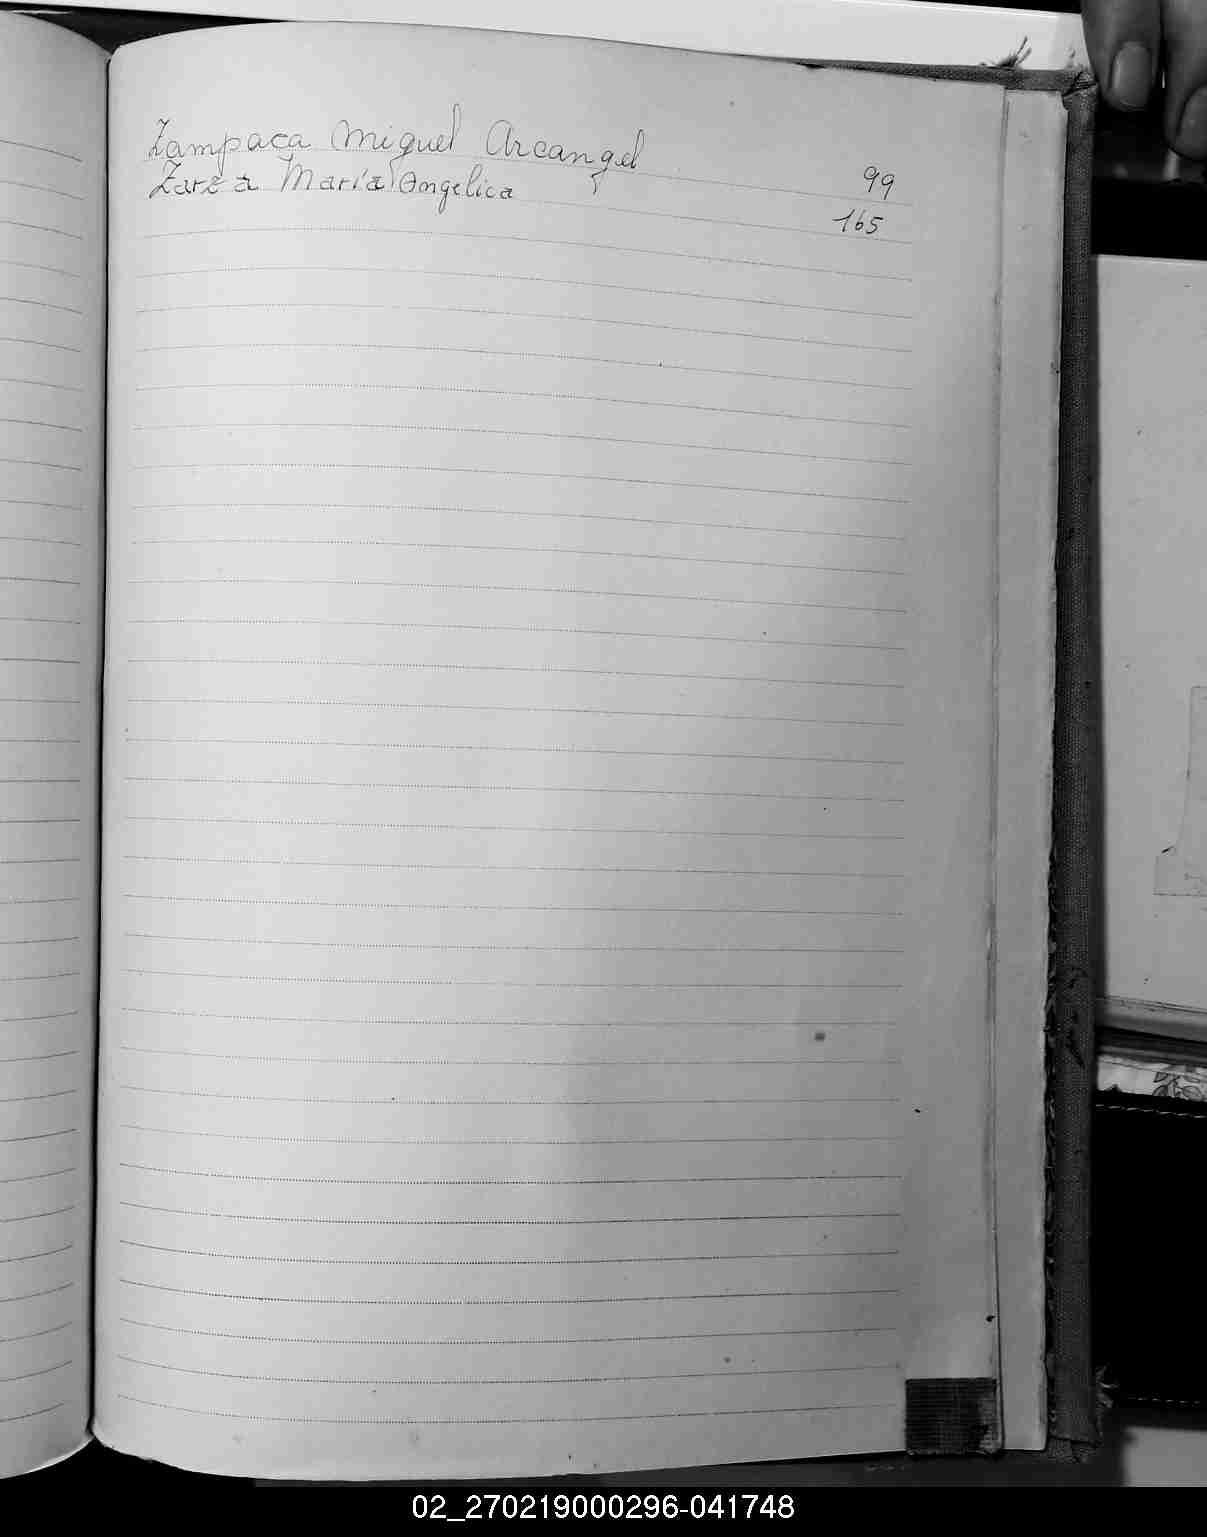 Zampaca Miguel Arcangel 99
Zarza María Angelica 165
02_270219000296-041748